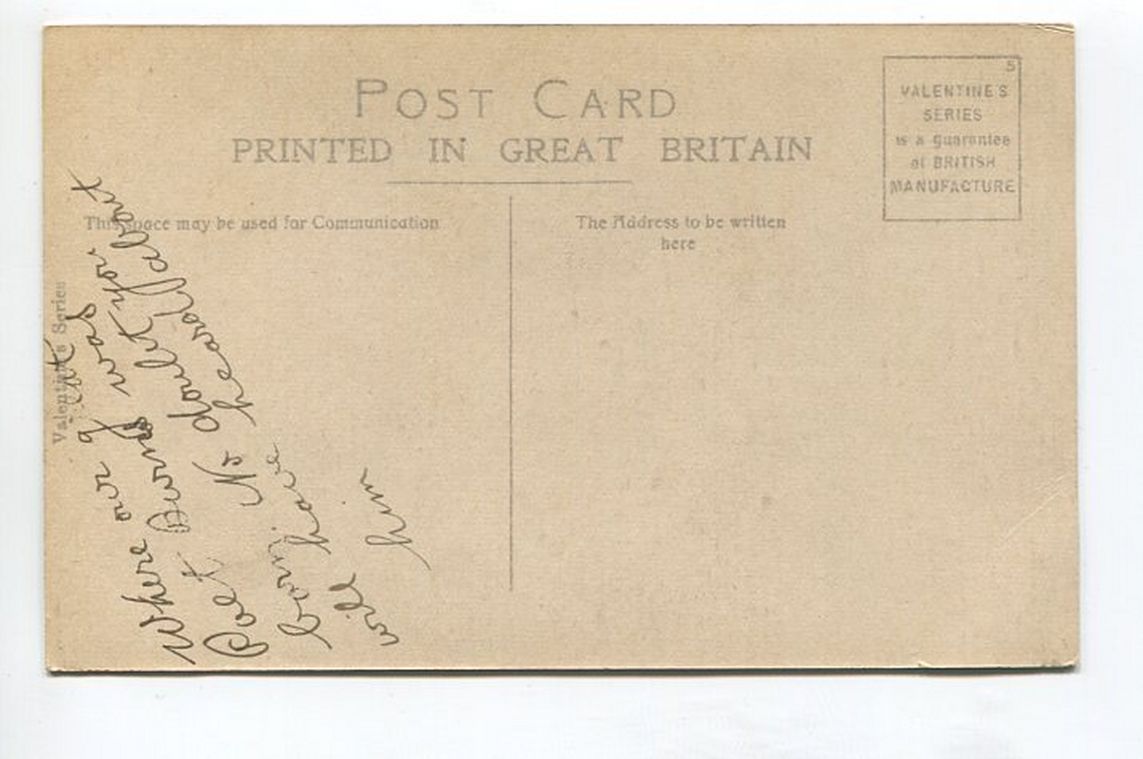 POST CARD
PRINTED IN GREAT BRITAIN
5
VALENTINE'S
SERIES
is a guarantee
of BRITISH
MANUFACTURE
This space may be used for Communication
The Address to be written
here
Valentine's Series
Where our great
Poet Burns was
born. No doubt you
will have heard about
him